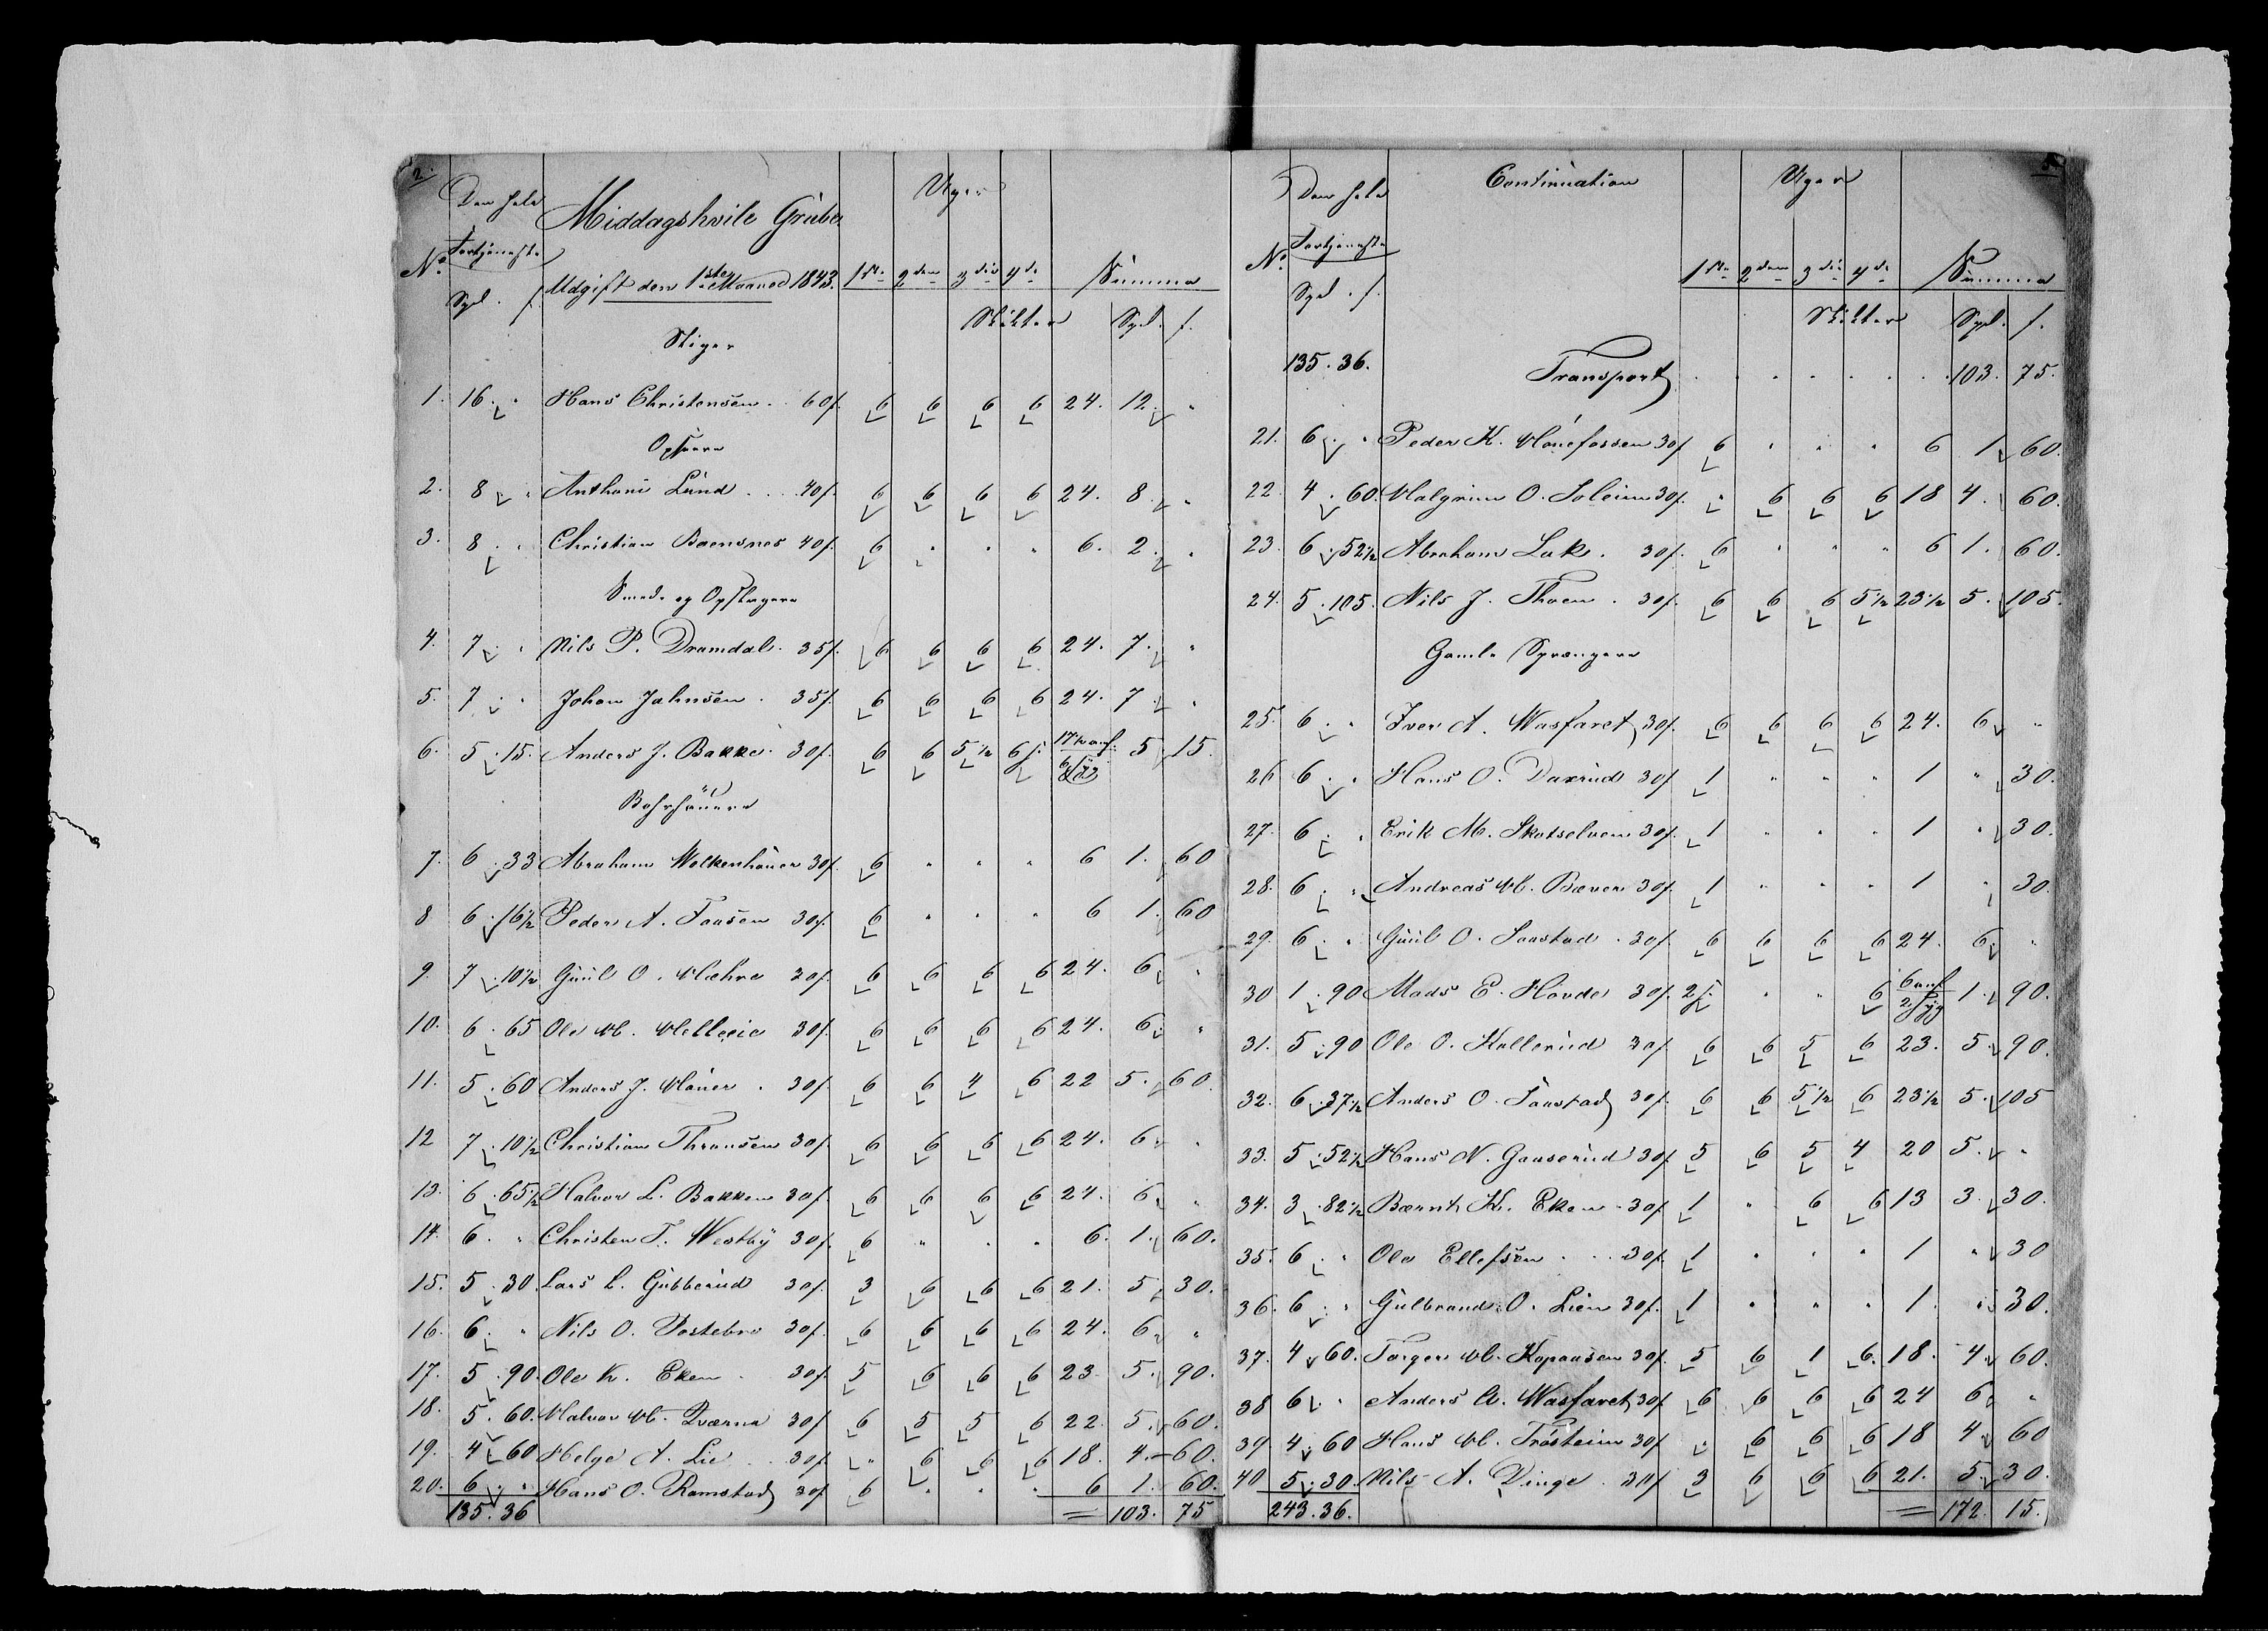 2.
Den hele
Fortjeneste
Middagshvile Grube
Uger
No
Udgift den 1ste Maaned 1843.
1ste 2den 3die 4de
Summa
Spd. s.
Skikter
Spd. s.
Stiger
1. 16. " Hans Christensen . 60s. 6 6 6 6 24. 12. "
2. 8 . " Anthoni Lund . . . 40s. 6 6 6 6 24. 8. "
3. 8 . " Christian Baensnes 40s. 6 " " " 6. 2. "
Smede og Opslagere
4. 7 . " Nils P. Dramdal. 35s. 6 6 6 6 24. 7. "
5. 7 . " Johan Jahnsen . 35s. 6 6 6 6 24. 7 . "
6. 5 . 15. Anders J. Bakke. 30s. 6 6 5 1/2 6 5. 15.
Bohrhauere
7. 6 . 33 Abraham Wolkenhauer 30s. 6 " " " 6 1. 60
8 6 . 16 1/2 Peder A. Faasen 30s. 6 " " " 6 1. 60
9. 7 . 10 1/2 Guul O. Mæhre 30s. 6 6 6 6 24. 6. "
10. 6 . 65 Ole 30s. 6 6 6 6 24. 6. "
11. 5 . 60 Anders J. . 30s. 6 6 4 6 22 5. 60.
12 7 . 10 1/2 Christian Thransen 30s. 6 6 6 6 24. 6. "
13. 6 . 65 1/2 Halvor L. Bakken 30s. 6 6 6 6 24. 6. "
14. 6. " Christen T. Westby 30s. 6 " " " 6. 1. 60.
15. 5 . 30. Lars L. Gubberud 30s. 3 6 6 6 21. 5 . 30.
16. 6. " Nils O. Postebro 30s. 6 6 6 6 24. 6. "
17. 5 . 90. Ole K. Eken . 30s. 5 6 6 6 23 5. 90.
18. 5 . 60. Halvor 30s 6 5 5 6 22. 5. 60.
19. 4 . 60 Helge A. Lie . . 30s " 6 6 6 18. 4. 60.
20. 6 . " Hans O. Ramstad 30s 6 " " " 6 1. 60.
135. 36 = 103. 75
Den hele
Fortjeneste
Continuation
Uger
No
1ste 2den 3die 4de
Summa
Spd. s.
Skikter
Spd. s.
135. 36. Transport . . . . . . . 103. 75.
21. 6 . " Peder K. 30s 6 " " " 6 1. 60.
22. 4 . 60. O. Soleim 30s. " 6 6 6 18 4. 60.
23. 6 . 52 1/2 Abraham Lake . 30s. 6 " " " 6 1. 60.
24. 5 . 105. Nils J. Thoen . 30s. 6 6 6 5 1/2 23 1/2 5. 105.
Gamle Sprængere
25. 6 . " Iver A. Wasfaret 30s. 6 6 6 6 24. 6. "
26 6 . " Hans O. Daxrud 30s 1 " " " 1 " 30.
27. 6 . " Erik M. Skotselven 30s. 1 " " " 1 " 30.
28. 6 . " Andreas Bæver 30s. 1 " " " 1 " 30.
29. 6 . " Guul O. Saastad . 30s. 6 6 6 6 24. 6. "
30 1 . 90 Mads E. Hovde 30s. 2 " " 6 1. 90.
31. 5 . 90 Ole O. Kollerud 30s 6 6 5 6 23. 5. 90.
32. 6 . 37 1/2 Anders O. Saastad 30s. 6 6 5 1/2 6 23 1/2 5. 105
33. 5 . 52 1/2 Hans N. Gauserud 30s. 5 6 5 4 20 5. "
34. 3 . 82 1/2 Bærnt K. Eken . 30s. 1 " 6 6 13 3. 30.
35. 6 . " Ole Ellefsen . . 30s. 1 " " " 1 " 30
36. 6 . " Gulbrand O. Lien 30s. 1 " " " 1. " 30.
37. 4 . 60. Torger 30s. 5 6 1 6. 18. 4. 60.
38 6 . " Anders A. Wasfaret 30s 6 6 6 6 24 6. "
39. 4 . 60 Hans 30s " 6 6 6 18 4 60
40 5 . 30. Nils A. Dinge . 30s 3 6 6 6 21. 5. 30.
243. 36. = 172. 15.